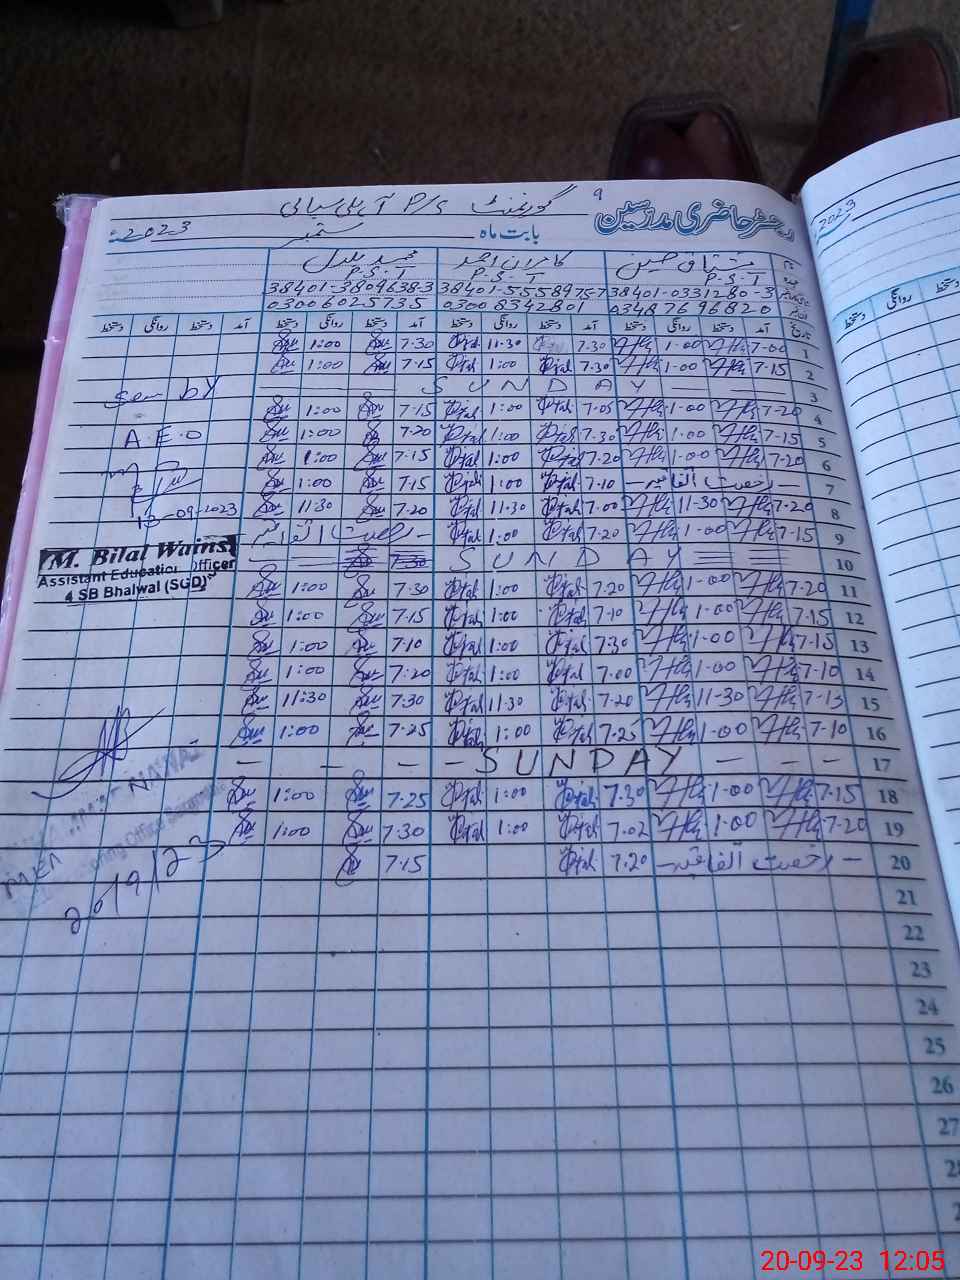 رجسٹر حاضری مدرسین
گورنمنٹ P/S
بابت ماہ ستمبر 2023ء
مشتاق حسین کامران احمد محمد بلال
P.S.T P.S.T P.S.T
38401-0331280-3 38401-5558975-7 38401-3809638-3
03487696820 03008342801 03006025735
آمد دستخط روانگی دستخط آمد دستخط روانگی دستخط آمد دستخط روانگی دستخط آمد دستخط روانگی دستخط
1 7-00 1-00 7.30 11-30 7-30 1:00
2 7-15 1-00 7.30 1:00 7.15 1:00
3 SUNDAY
4 7-20 1-00 7.05 1:00 7.15 1:00
5 7-15 1-00 7.30 1:00 7.20 1:00
6 7-20 1-00 7.20 1:00 7.15 1:00
7 رخصت اتفاقیہ 7-10 1:00 7.15 1:00
8 7-20 11-30 7.00 11.30 7.20 11:30
9 7-15 1-00 7.20 1:00 رخصت اتفاقیہ
10 SUNDAY 7-30
11 7-20 1-00 7.20 1:00 7.30 1:00
12 7-15 1-00 7-10 1:00 7.15 1:00
13 7-15 1-00 7.30 1:00 7.10 1:00
14 7-10 1-00 7.00 1:00 7.20 1:00
15 7-15 11-30 7.20 11.30 7.30 11:30
16 7-10 1-00 7.25 1:00 7.25 1:00
17 SUNDAY
18 7-15 1-00 7.30 1:00 7.25 1:00
19 7-20 1-00 7.02 1:00 7.30 1:00
20 رخصت اتفاقیہ 7.20 7.15
21
22
23
24
25
26
27
28
Seen by
A.E.O
13-09-2023
M. Bilal Wains
Assistant Education Officer
4 SB Bhalwal (SGD)
NAWAZ
MEA
20/9/23
2023
دستخط روانگی دستخط
20-09-23 12:05